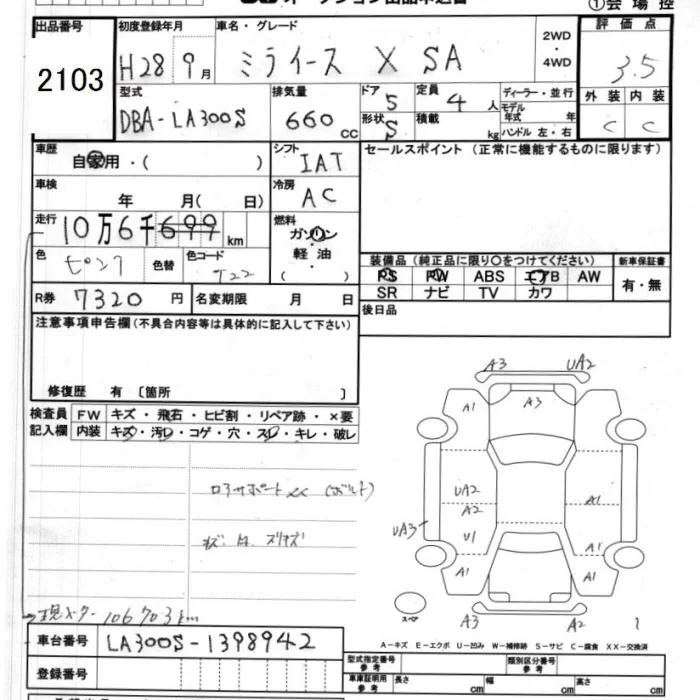 ①会場控
出品番号 初度登録年月 車名・グレード 評価点
2103 H28年9月 ミライース X SA 2WD・4WD 3.5
型式 排気量 ドア 5 定員 4人 ディーラー・並行 外装 内装
DBA-LA300S 660cc 形状 S 積載 kg モデル年式 年 C C
ハンドル 左・右
車歴 自家用・( ) シフト IAT セールスポイント (正常に機能するものに限ります)
車検 年 月( 日) 冷房 AC
走行 10万6千699km 燃料 ガソリン・軽油・( )
色 ピンク 色替 色コード T22
装備品 (純正品に限り○をつけてください) 新車保証書
PS PW ABS エアB AW 有・無
SR ナビ TV カワ
R券 7320円 名変期限 月 日 後日品
注意事項申告欄(不具合内容等は具体的に記入して下さい)
修復歴 有 〔箇所 〕
検査員 FW キズ・飛石・ヒビ割・リペア跡・×要
記入欄 内装 キズ・汚レ・コゲ・穴・スレ・キレ・破レ
A3 UA2
A1 A3
UA2
A2 A1
UA3 U1 A1
A1 A1
スペア A3 A2
ロアサポートXX (ボルト)
キズ
現メーター 106703km
車台番号 LA300S-1398942
登録番号
A-キズ E-エクボ U-凹み W-補修跡 S-サビ C-腐食 XX-交換済
型式指定番号 参考 類別区分番号 参考
車庫証明用 参考 長さ cm 幅 cm 高さ cm